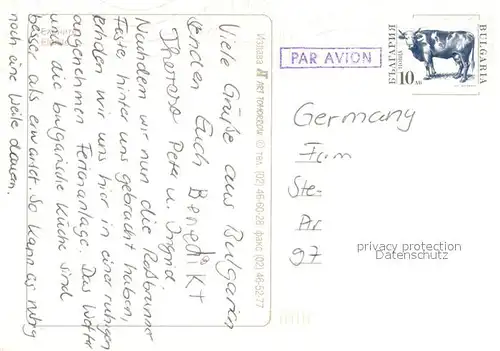 Viele Grüße aus Bulgarien
senden Euch Benedikt
Theresa Peter u. Ingrid.
Nachdem wir nun die
Feste hinter uns gebracht haben,
erholen wir uns hier in einer ruhigen
angenehmen Ferienanlage. Das Wetter
und die bulgarische Küche sind
besser als erwartet. So kann es ruhig
noch eine Weile dauern.
Издава ART TOMORROW © тел. (02) 46-60-28 факс (02) 46-52-77
PAR AVION
БЪЛГАРИЯ
10 лв
BULGARIA
Germany
Fam
Ste-
Ar
97
privacy protection
Datenschutz